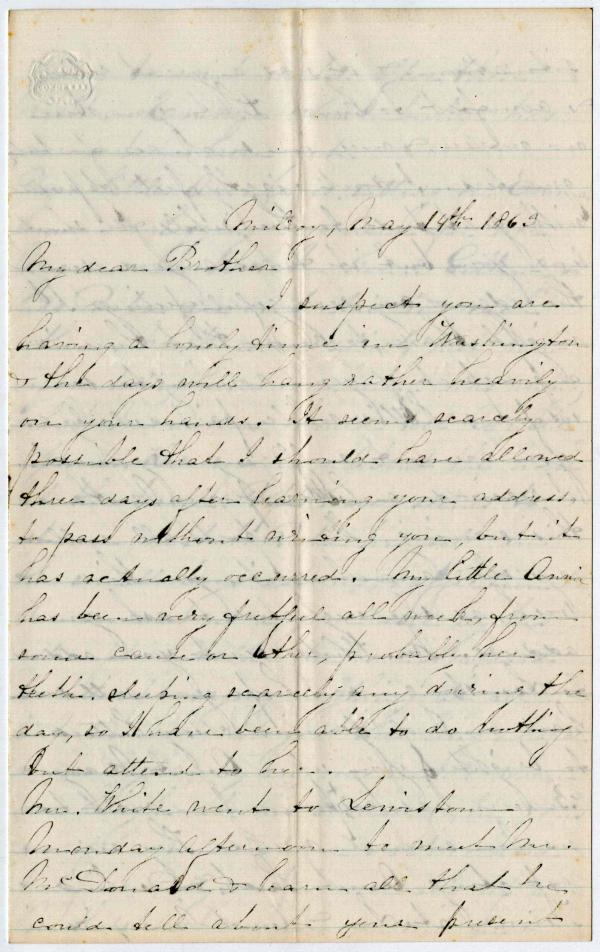 Milroy, May 14th 1863
My dear Brother
I suspect you are
having a lonely time in Washington
& the days will hang rather heavily
on your hands. It seems scarcely
possible that I should have allowed
three days after learning your address
to pass without writing you, but it
has actually occurred. My little Annie
has been very fretful all week, from
some cause or other, probably her
teeth. sleeping scarcely any during the
day, so I have been able to do nothing
but attend to her.
Mr. White went to Lewistown
Monday afternoon to meet Mr.
McDonald & learn all that he
could tell about your present